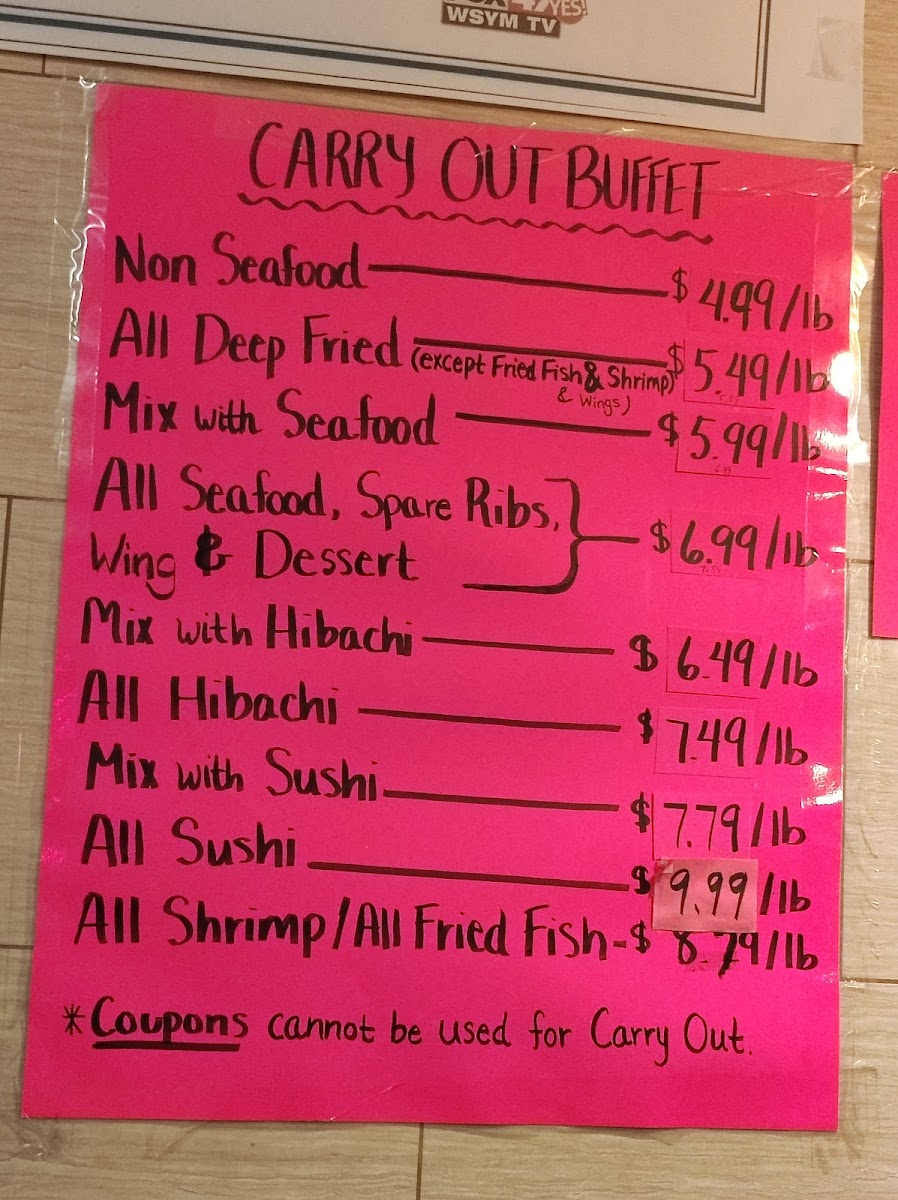 YES!
WSYM TV
CARRY OUT BUFFET
Non Seafood $ 4.99/lb
All Deep Fried (except Fried Fish & Shrimp) $ 5.49/lb
& Wings)
Mix with Seafood $ 5.99/lb
All Seafood, Spare Ribs,
Wing & Dessert $ 6.99/lb
Mix with Hibachi $ 6.49/lb
All Hibachi $ 7.49/lb
Mix with Sushi $ 7.79/lb
All Sushi $ 9.99/lb
All Shrimp/All Fried Fish - $ 8.79/lb
*Coupons cannot be used for Carry Out.